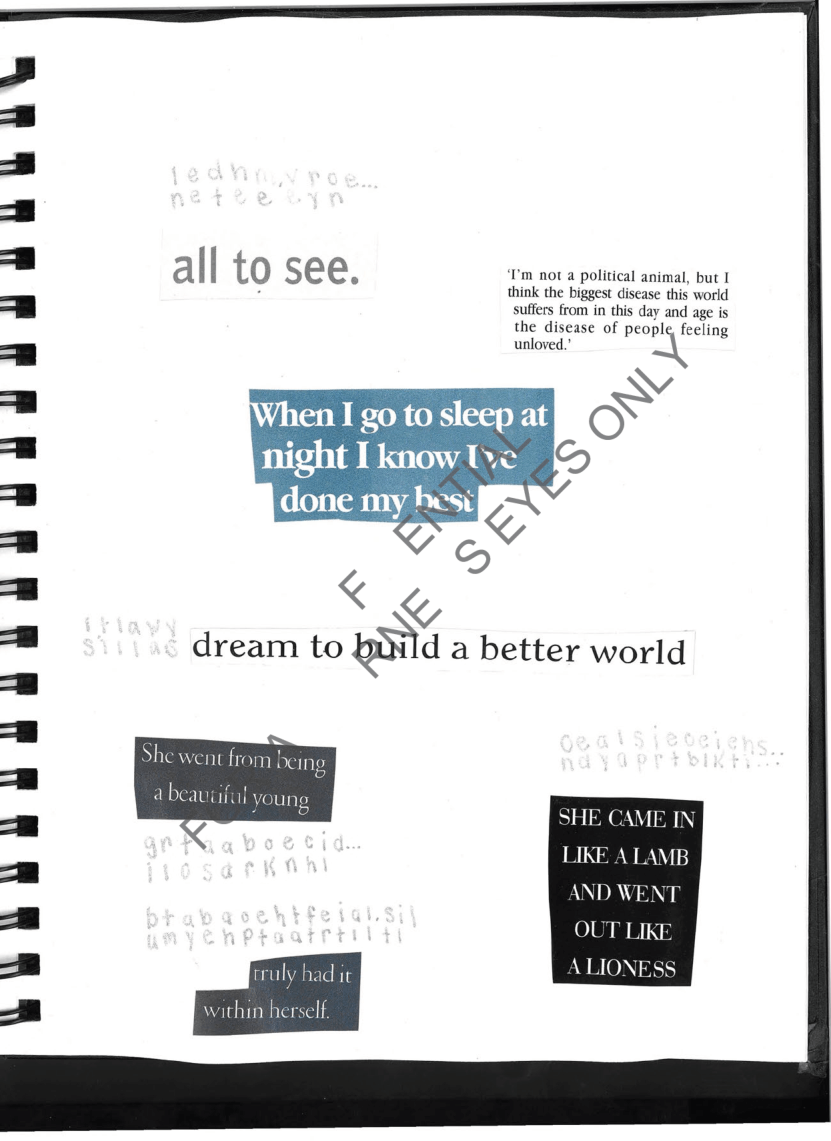 all to see.
'I'm not a political animal, but I
think the biggest disease this world
suffers from in this day and age is
the disease of people feeling
unloved.'
When I go to sleep at
night I know I've
done my best
F ENTIAL
F A RNE S EYES ONLY
dream to build a better world
She went from being
a beautiful young
grfaaboecid...
iiosdrknhl
SHE CAME IN
LIKE A LAMB
AND WENT
OUT LIKE
A LIONESS
truly had it
within herself.